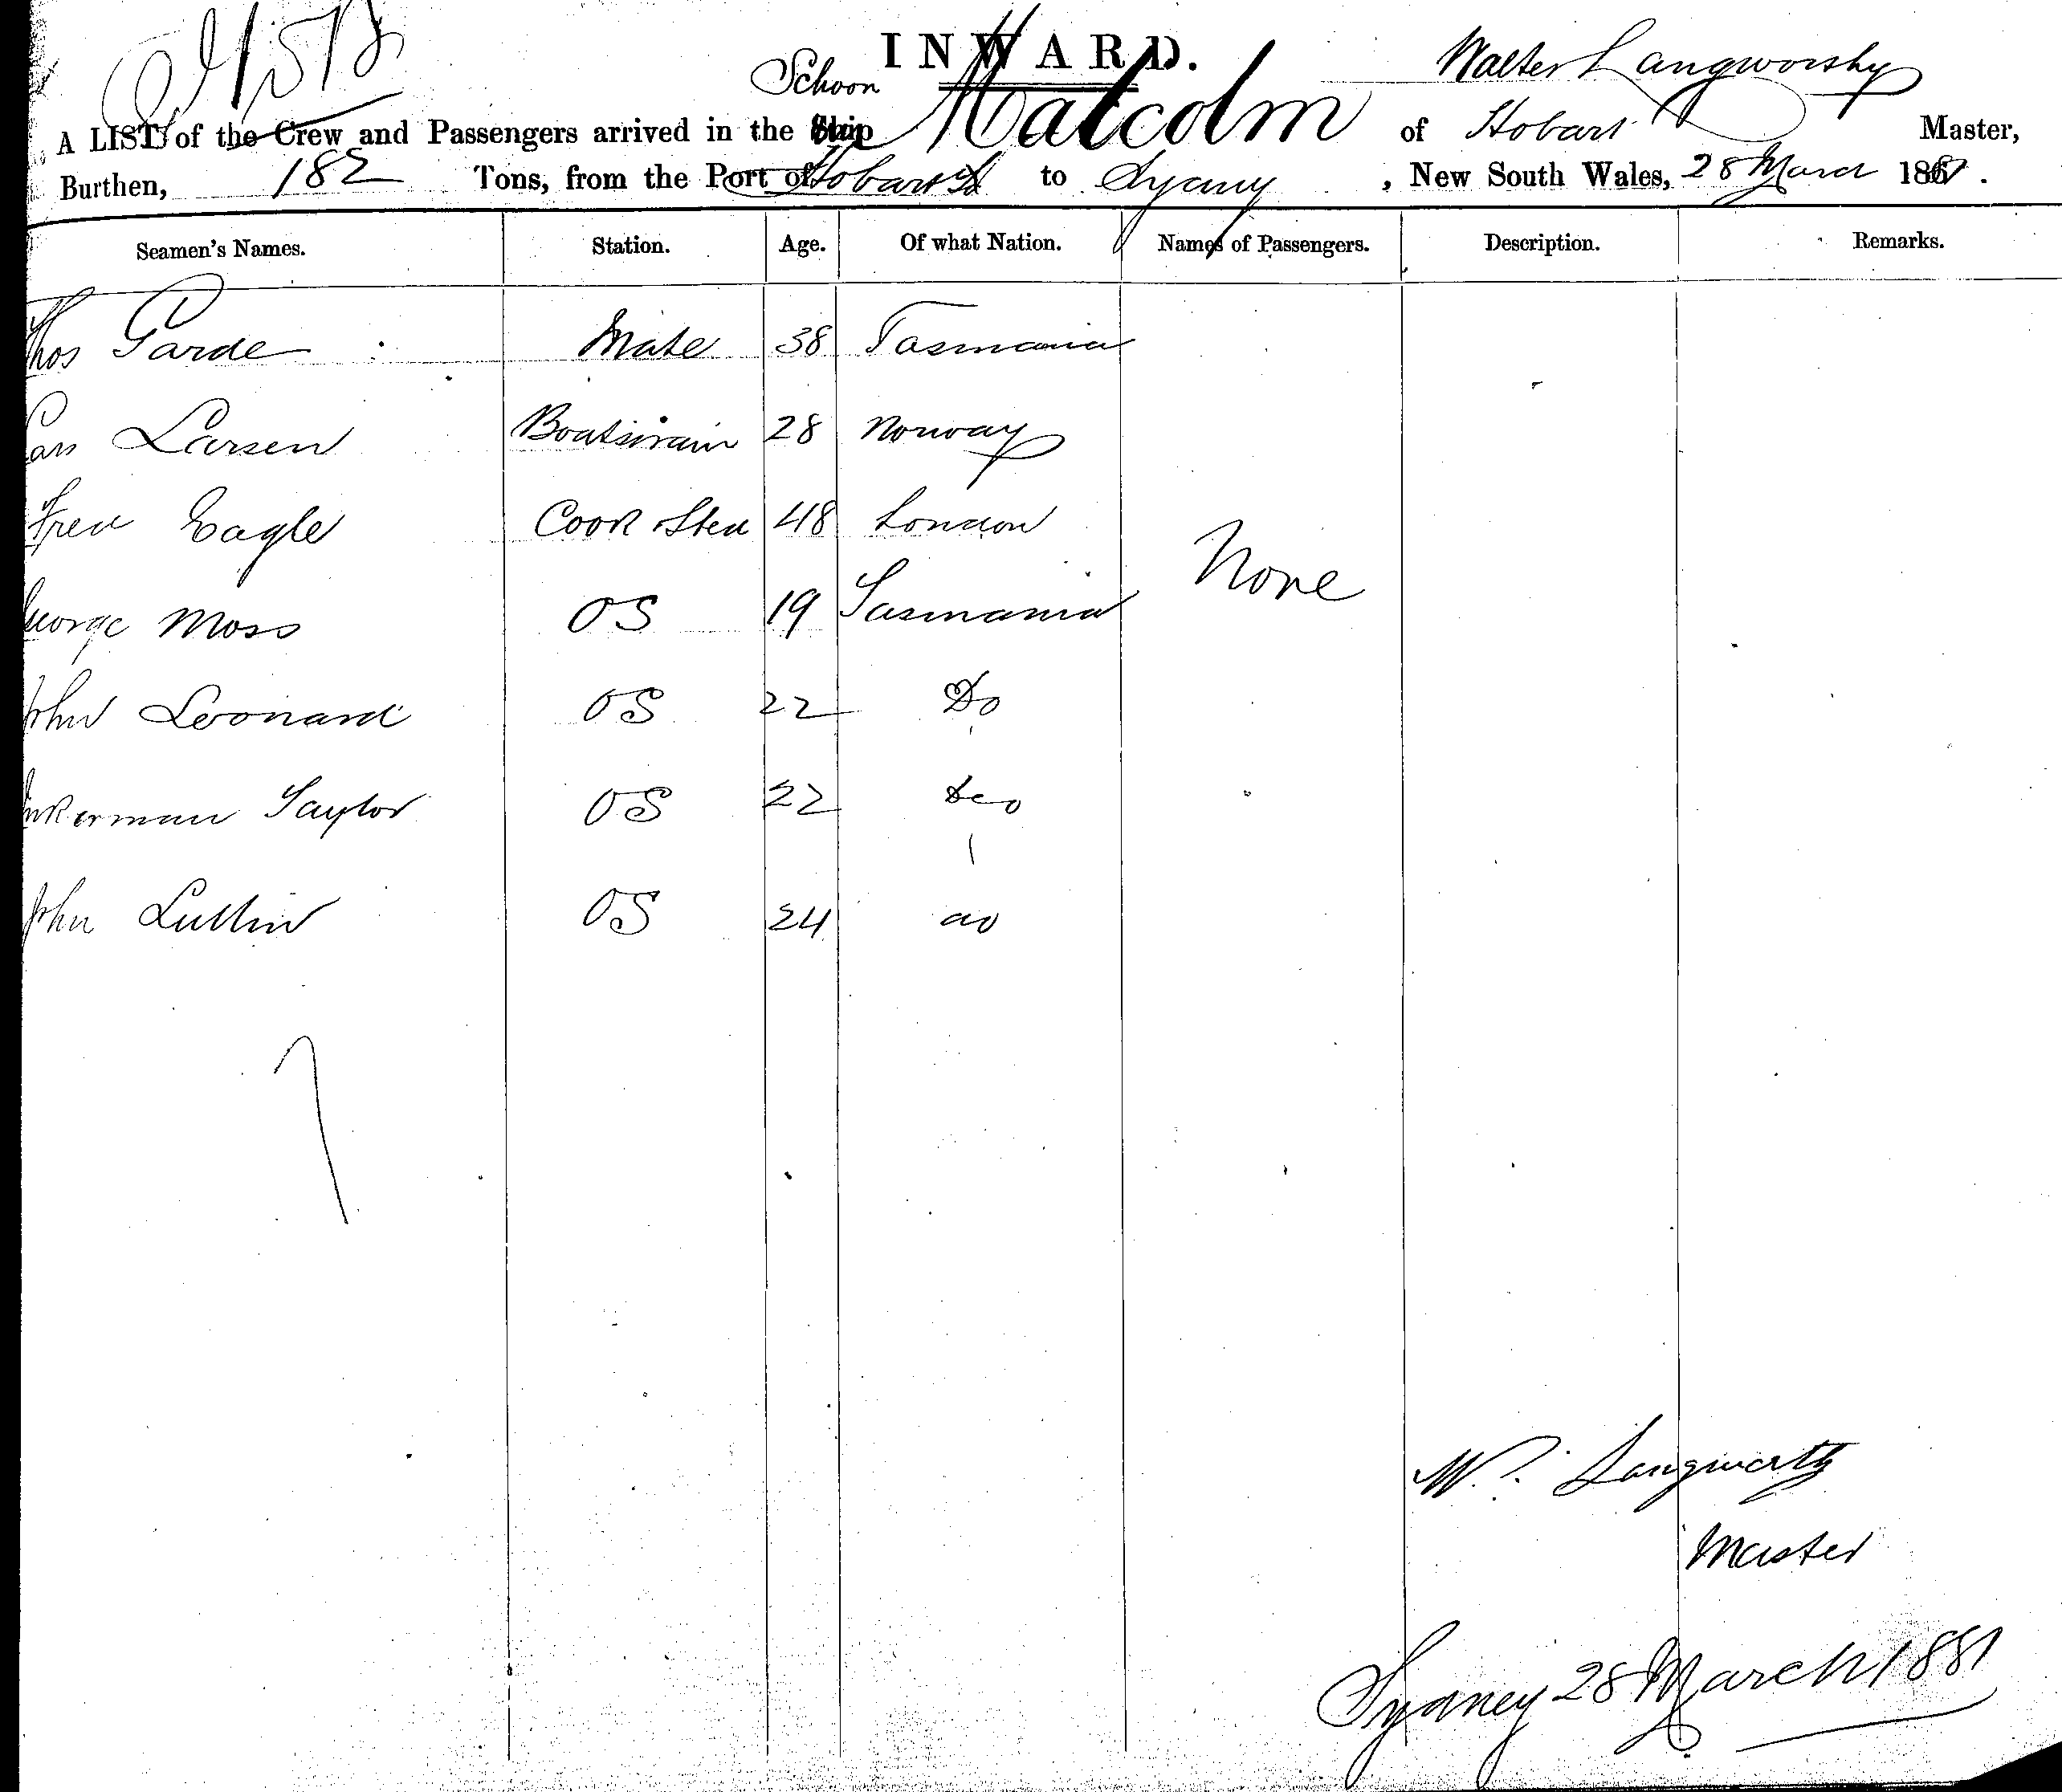 INWARD.
Schoon Walter Langworthy
A LIST of the Crew and Passengers arrived in the Ship Malcolm of Hobart Master,
Burthen, 182 Tons, from the Port of Hobart to Sydney, New South Wales, 28 March 1881.
Seamen's Names. Station. Age. Of what Nation. Names of Passengers. Description. Remarks.
Thos Garde Mate 38 Tasmania
Lars Larsen Boatswain 28 Norway
Fred Eagle Cook Sted 48 London
None
George Moss OS 19 Tasmania
John Leonard OS 22 Do
Inkerman Taylor OS 22 do
John Luttin OS 24 do
7
W. Langworthy
Master
Sydney 28 March 1881